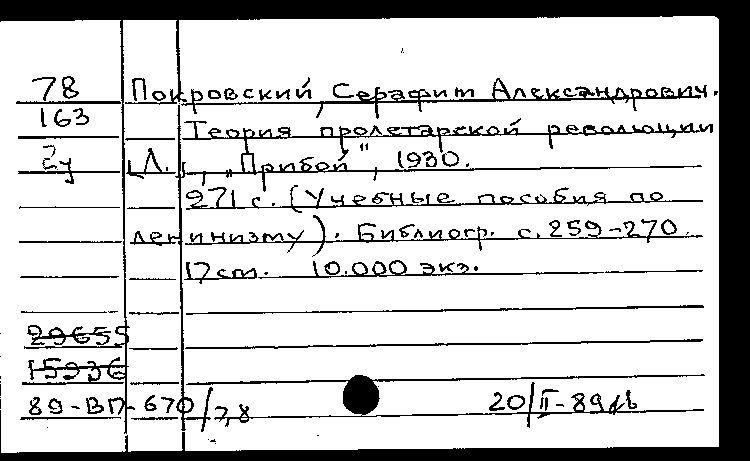 78 Покровский, Серафим Александрович.
163 Теория пролетарской революции
[Л.], „Прибой", 1930.
271 с. (Учебные пособия по
ленинизму). Библиогр. с. 259-270.
17 cm. 10.000 экз.
29655
15936
89-ВП-670/7,8 20/II-89